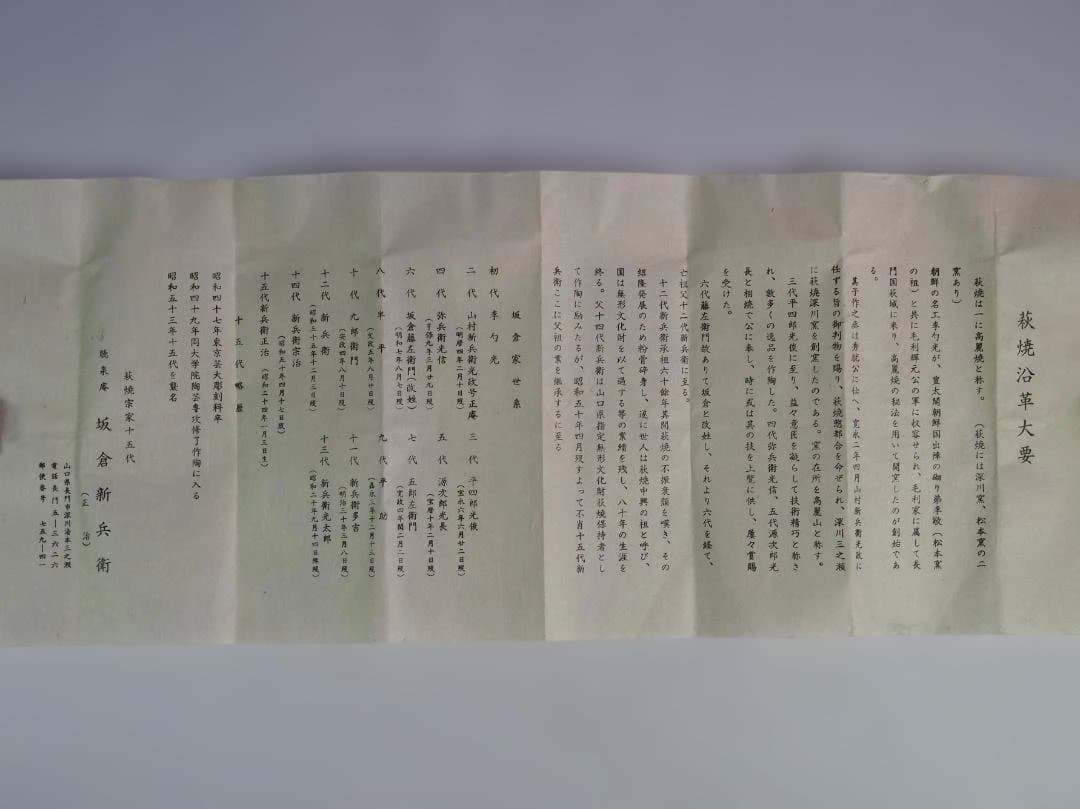 萩焼沿革大要
萩焼は一に高麗焼と称す。　（萩焼には深川窯、松本窯の二
窯あり）
朝鮮の名工李勺光が、豊太閤朝鮮国出陣の砌り弟李敬（松本窯
の祖）と共に毛利輝元公の軍に収容せられ、毛利家に属して長
門国萩城に来り、高麗焼の秘法を用いて開窯したのが創始であ
る。
其子作之烝は秀就公に仕へ、寛永二年四月山村新兵衛光政に
任ずる旨の御判物を賜り、萩焼惣都合を命ぜられ、深川三之瀬
に萩焼深川窯を創業したのである。窯の在所を高麗山と称す。
三代平四郎光俊に至り、益々意匠を凝らして技術精巧と称さ
れ、数多くの逸品を作陶した。四代弥兵衛光信、五代源次郎光
長と相続で公に奉じ、時に或は其の技を上覧に供し、屡々賞賜
を受けた。
六代藤左衛門故ありて坂倉と改姓し、それより六代を経て、
亡祖父十二代新兵衛に至る。
十二代新兵衛承祖六十余年其間萩焼の不振衰頽を嘆き、その
紹隆発展のため粉骨砕身し、遂に世人は萩焼中興の祖と呼び、
国は無形文化財を以て遇する等の業績を残し、八十年の生涯を
終る。父十四代新兵衛は山口県指定無形文化財萩焼保持者とし
て作陶に励みたるが、昭和五十年四月歿すよって不肖十五代新
兵衛ここに父祖の業を継承するに至る
坂倉家世系
初代　李勺光
二代　山村新兵衛光政号正庵　三代　平四郎光俊
（明暦四年二月十日歿）　（宝永六年六月廿二日歿）
四代　弥兵衛光信　五代　源次郎光長
（享保九年三月廿九日歿）　（宝暦十年二月十日歿）
六代　坂倉藤左衛門（改姓）　七代　五郎左衛門
（明和七年八月七日歿）　（寛政四年閏二月二日歿）
八代　半平　九代　平助
（文政五年八月廿日歿）　（嘉永三年十二月十三日歿）
十代　九郎衛門　十一代　新兵衛多吉
（安政四年八月十日歿）　（明治三十年三月八日歿）
十二代　新兵衛　十三代　新兵衛光太郎
（昭和三十五年十二月三日歿）　（昭和二十年九月十四日歿）
十四代　新兵衛宗治
（昭和五十年四月十七日歿）
十五代新兵衛正治（昭和二十四年一月三日生）
十五代略歴
昭和四十七年東京芸大彫刻科卒
昭和四十九年同大学院陶芸専攻修了作陶に入る
昭和五十三年十五代を襲名
萩焼宗家十五代
聴泉庵　坂倉新兵衛
（正治）
山口県長門市深川湯本三之瀬
電話長門五―三六二六
郵便番号　七五九―四一